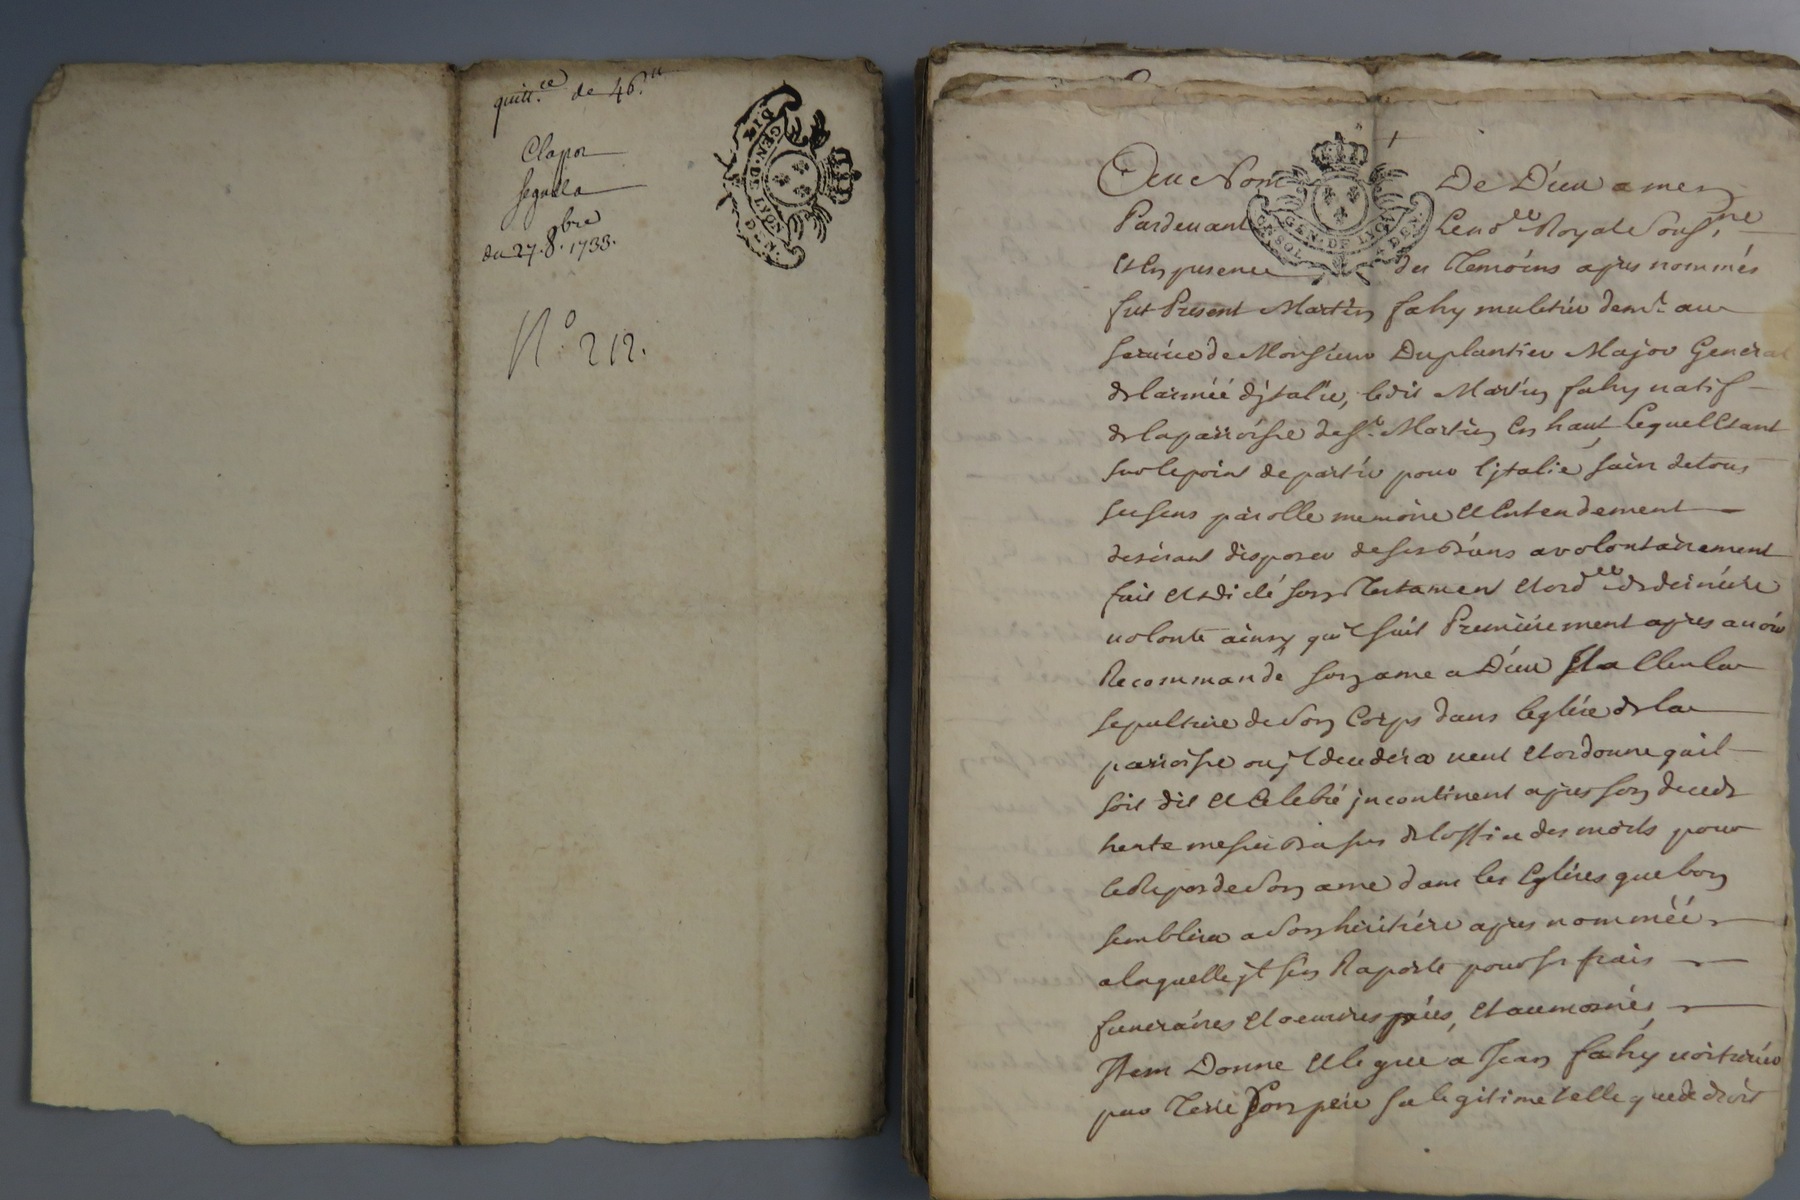 quitt.ce de 46.tt
Clapor
Seguela
du 27. 8.bre 1733.
N.o 212.
DIX
GEN. DE LYON
DEN.
Au Nom De Dieu amen
GEN. DE LYON
DEN
Pardevant Le no.re Royal Sous.ne
Et En presence des Temoins apres nommés
fut Present Martin fahy muletier dem.t au
service de Monsieur Duplantier Major General
de larméé djtalie, ledit Martin fahy natif
de laparroisse de S.t Martin En haut Lequel Etant
sur le point de partir pour Ljtalie sain de tous
ses sens parolle memoire Et Entendement
desirant disposer de ses Biens a volontairement
fait Et dicté son Testament Et ord.ce de derniere
volonte ainsy quil suit Premierement apres avoir
Recommandé son ame a Dieu Et a Eleu la
sepulture de son Corps dans leglise de la
parroisse ou jl decedera veut Et ordonne quil
soit dit Et Celebré jncontinent apres son deceds
trente messes Basses de loffice des morts pour
le Repos de son ame dans les Eglises que bon
semblera a son heritiere apres nomméé
a laquelle jl sen Raporte pour ses frais
funeraires Et oeuvres pies, Et aumosnes
Jtem Donne Et legue a Jean fahy voiturier
par Terre son pere sa legitime telle que de droit